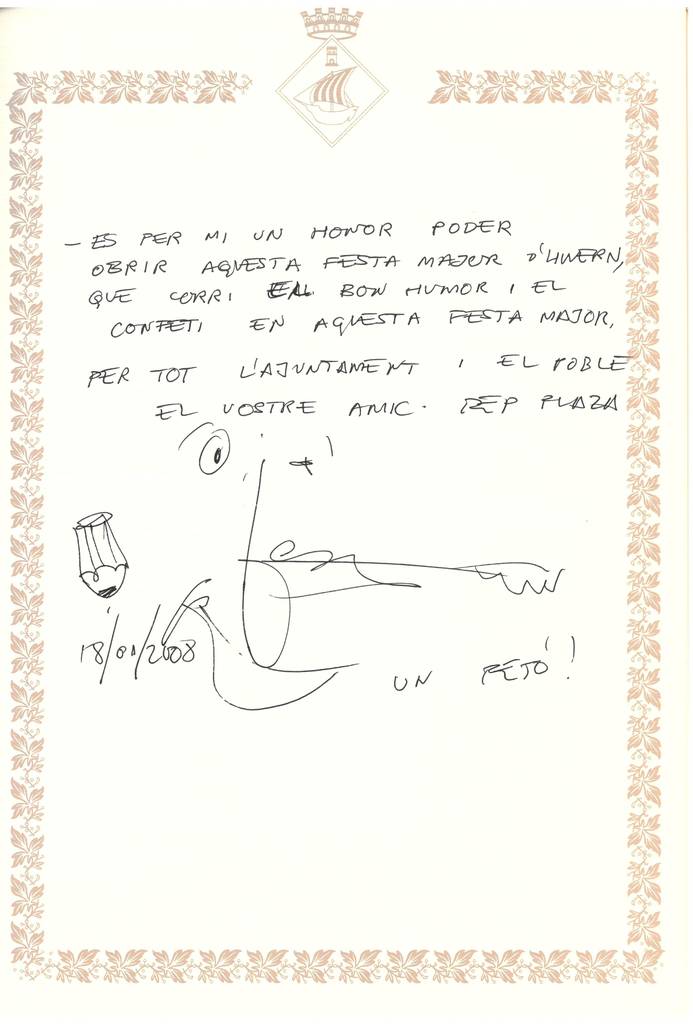 - ES PER MI UN HONOR PODER
OBRIR AQUESTA FESTA MAJOR D'HIVERN,
QUE CORRI EL BON HUMOR I EL
CONFETI EN AQUESTA FESTA MAJOR,
PER TOT L'AJUNTAMENT I EL POBLE
EL VOSTRE AMIC. PEP PLAZA
18/01/2008
UN PETÓ!